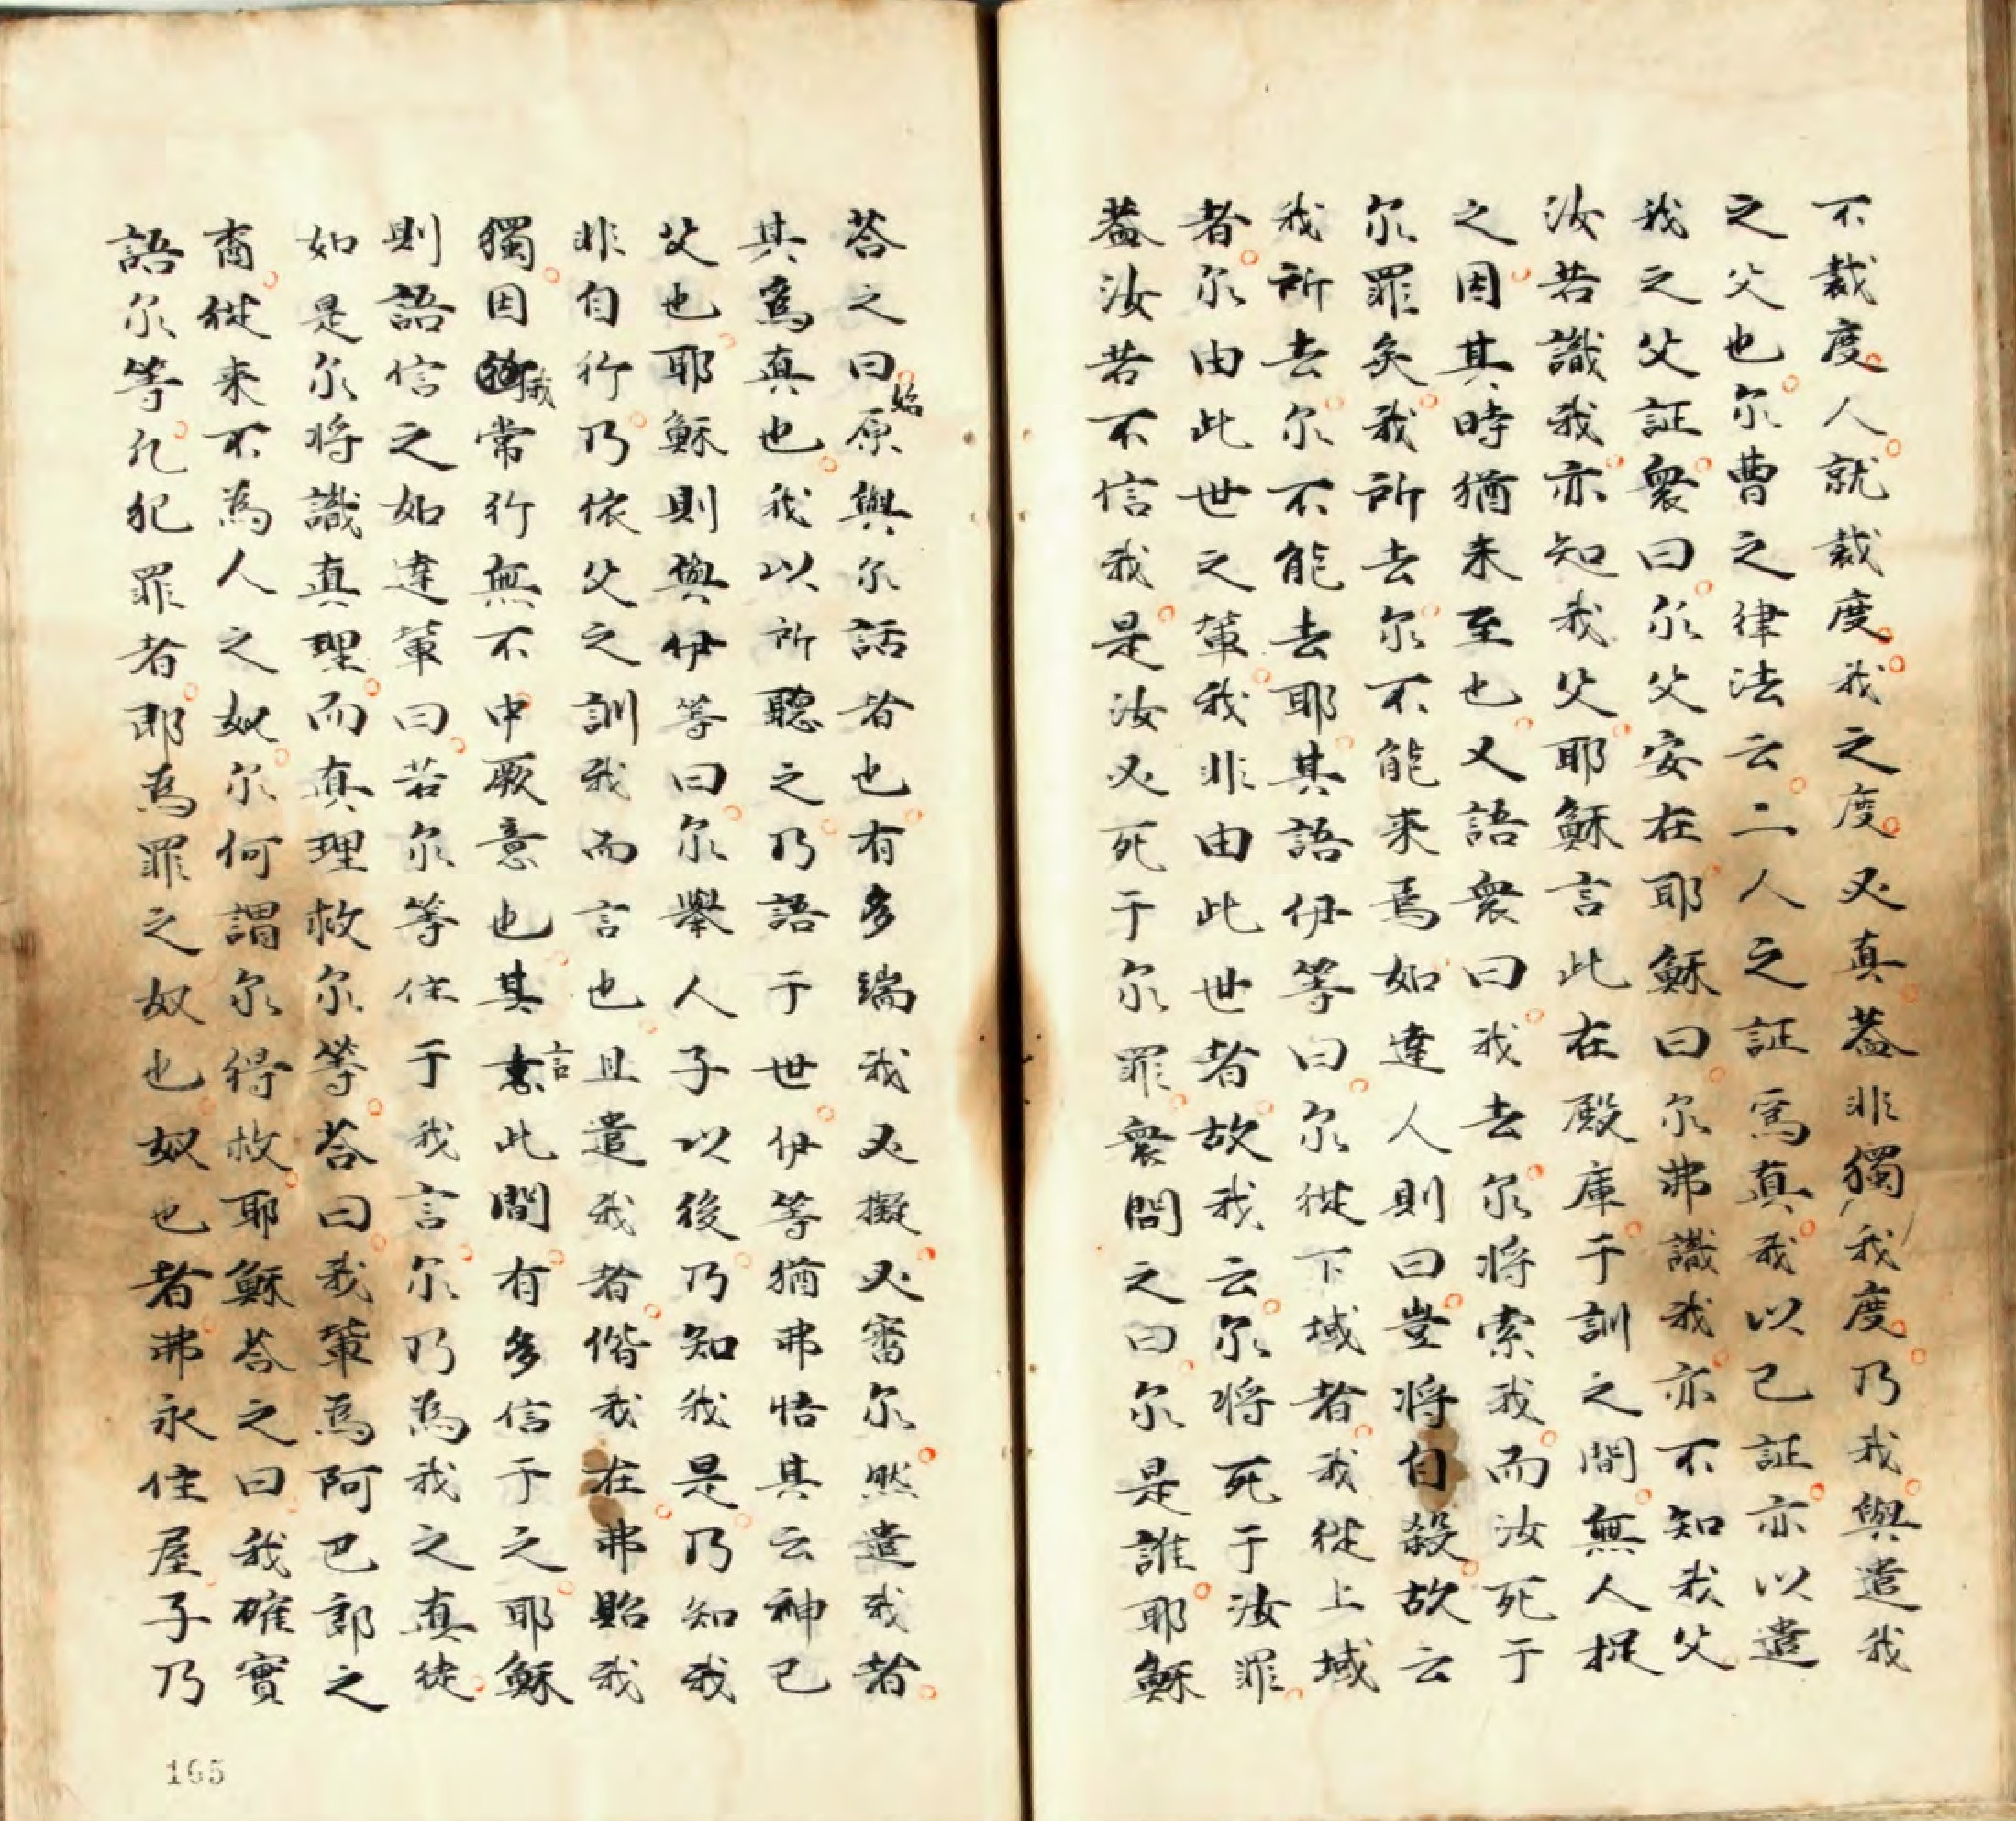 不裁度人就裁度我之度必真葢非獨我度乃我與遣我
之父也尔曹之律法云二人之証爲真我以己証亦以遣
我之父証衆曰尔父安在耶穌曰尔弗識我亦不知我父
汝若識我亦知我父耶穌言此在殿庫于訓之間無人捉
之因其時猶未至也又語衆曰我去尔将索我而汝死于
尔罪矣我所去尔不能来焉如達人則曰豈将自殺故云
我所去尔不能去耶其語伊等曰尔従下域者我従上域
者尔由此世之輩我非由此世者故我云尔将死于汝罪
葢汝若不信我是汝必死于尔罪衆問之曰尔是誰耶穌
荅之曰原始與尔話者也有多端我必擬必審尔然遣我者
其爲真也我以所聽之乃語于世伊等猶弗悟其云神己
父也耶穌則與伊等曰尔舉人子以後乃知我是乃知我
非自行乃依父之訓我而言也且遣我者偕我在弗貽我
獨因我常行無不中厥意也其言此間有多信于之耶穌
則語信之如達輩曰若尔等住于我言尔乃為我之真徒
如是尔将識真理而真理救尔等荅曰我輩爲阿巴郎之
裔従来不為人之奴尔何謂尔得救耶穌荅之曰我確實
語尔等凡犯罪者即爲罪之奴也奴也者弗永住屋子乃
165